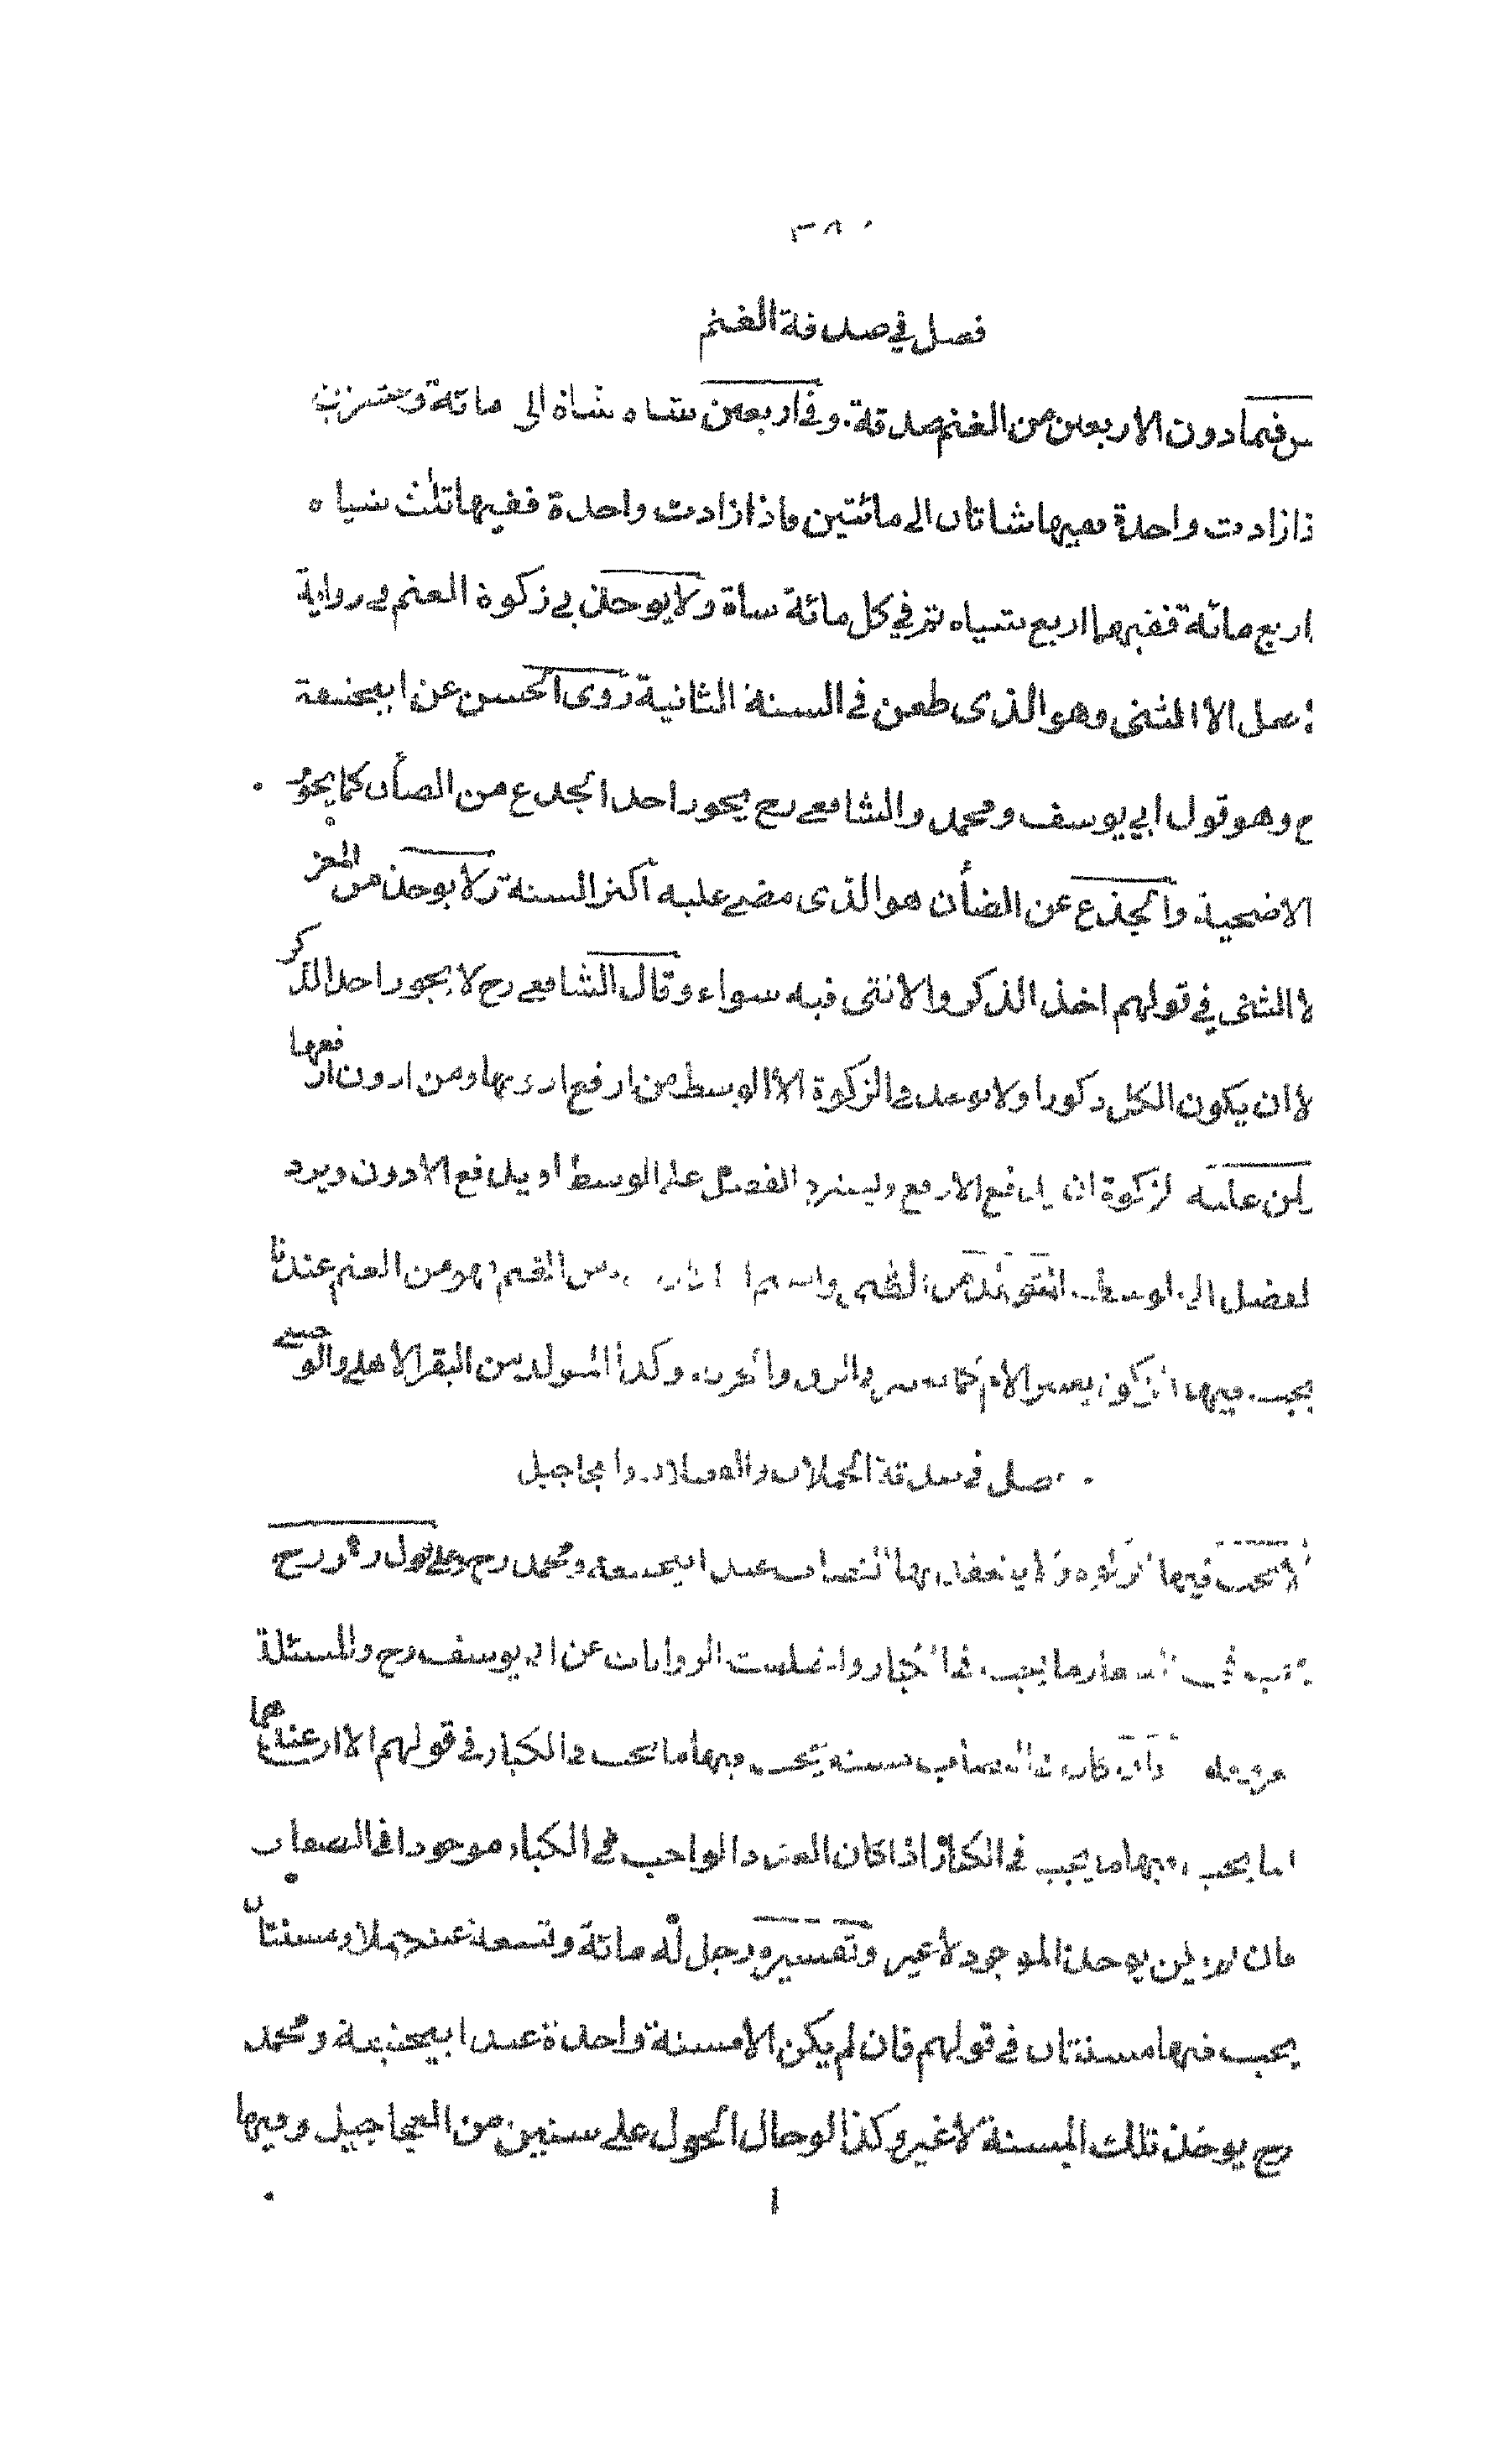 فصل في صدقة الغنم
س فيما دون الاربعين من الغنم صدقة. وفي اربعين شياه شاة الى مائة وعشرين
ذا زادت واحدة ففيها شاتان الى مائتين فاذا زادت واحدة ففيها ثلث شياه
اربع مائة ففيها اربع شياه ثم في كل مائة شاة ولا يوخذ في زكوة الغنم في رواية
الاصل الا الثنى وهو الذى طعن في السنة الثانية روى الحسن عن ابيحنيفة
ح وهو قول ابي يوسف ومحمد والشافعي رح يجوز اخذ الجذع من الضأن كما يجوز
الاضحية والجذع عن الضأن هو الذى مضى عليه أكثر السنة ولا يوخذ من المعز
لا الثنى في قولهم اخذ الذكر والانثى فيه سواء وقال الشافعي رح لا يجوز اخذ الذكر
لا ان يكون الكل ذكورا ولا يوخذ في الزكوة الا الوسط من ارفع ادونها ومن ادون ارفعها
لمن عليه الزكوة ان يدفع الارفع وليسترد الفضل على الوسط او يدفع الادون ويرد
لفضل الى الوسط المتولد من الظبى من الغنم فهو من الغنم عندنا
يجب فيها وكذا المتولد من البقر الاهلى والوحشى
فصل في صدقة الحملان والفصلان والعجاجيل
لا تجب فيها الزكوة ولا ينعقد بها النصاب عند ابيحنيفة ومحمد رح وعلى قول زفر رح
ما يجب في الكبار واختلفت الروايات عن ابي يوسف رح والمسئلة
معروفة وان كان في النصاب مسنة يجب فيها ما يجب في الكبار في قولهم الا ان عندهما
انما يجب فيها ما يجب في الكبار اذا كان العدد الواجب في الكبار موجودا في الصغار
فان لم يكن يوخذ الموجود لا غير وتفسيره رجل له مائة وتسعة عشر حملا ومسنتان
يجب فيها مسنتان في قولهم فان لم يكن الا مسنة واحدة عند ابيحنيفة ومحمد
رح يوخذ تلك المسنة لا غير وكذا لو حال الحول على ستين من العجاجيل وفيها